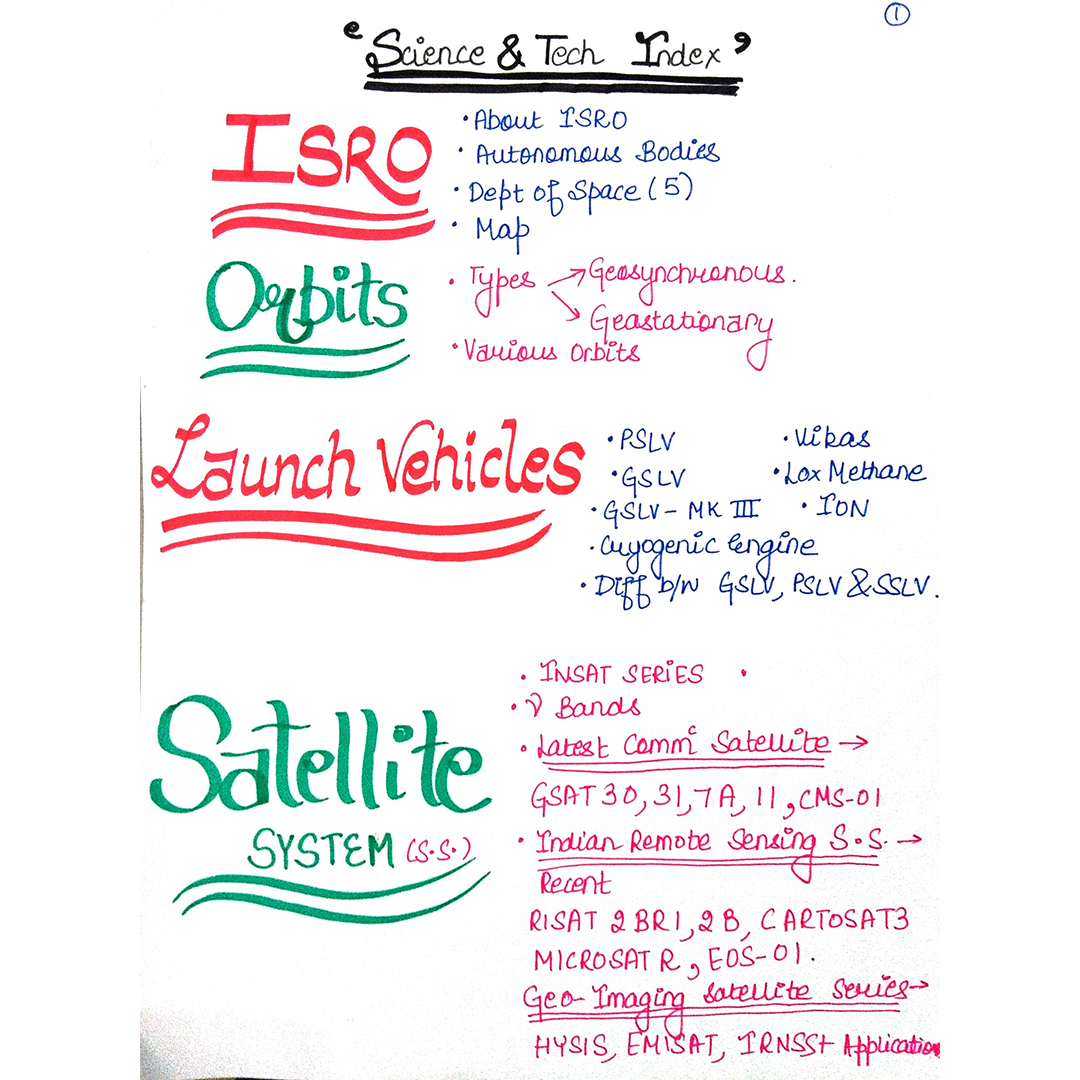 1
"Science & Tech Index"
ISRO
• About ISRO
• Autonomous Bodies
• Dept of Space (5)
• Map
Orbits
• Types → Geosynchronous.
→ Geastationary
• Various Orbits
Launch Vehicles
• PSLV • Vikas
• GSLV • Lox Methane
• GSLV - MK III • ION
• Cryogenic Engine
• Diff b/w GSLV, PSLV & SSLV.
Satellite
SYSTEM (S.S.)
• INSAT SERIES •
• ν Bands
• Latest Commc Satellite →
GSAT 30, 31, 7A, 11, CMS-01
• Indian Remote Sensing S.S. →
Recent
RISAT 2BR1, 2B, CARTOSAT3
MICROSAT R, EOS-01.
Geo-Imaging Satellite Series →
HYSIS, EMISAT, IRNSS+ Application